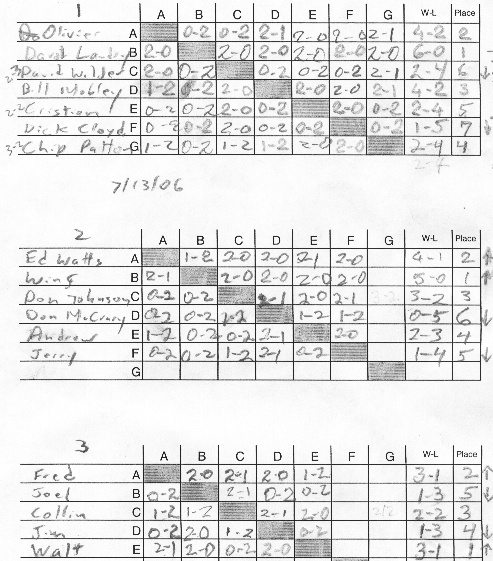 1
A B C D E F G W-L Place
Jo Olivier A 0-2 0-2 2-1 2-0 2-0 2-1 4-2 2
David Landry B 2-0 2-0 2-0 2-0 2-0 2-0 6-0 1
David Wilder C 2-0 0-2 0-2 0-2 0-2 2-1 2-4 6
Bill Mobley D 1-2 0-2 2-0 2-0 2-0 2-1 4-2 3
Cristian E 0-2 0-2 2-0 0-2 2-0 0-2 2-4 5
Dick Cloyd F 0-2 0-2 2-0 0-2 0-2 0-2 1-5 7
Chip Patter G 1-2 0-2 1-2 1-2 2-0 2-0 2-4 4
7/13/06
2
A B C D E F G W-L Place
Ed Watts A 1-2 2-0 2-0 2-1 2-0 4-1 2
Wing B 2-1 2-0 2-0 2-0 2-0 5-0 1
Don Johnson C 0-2 0-2 2-1 2-0 2-1 3-2 3
Don McCrary D 0-2 0-2 1-2 1-2 1-2 0-5 6
Andrew E 1-2 0-2 0-2 2-1 2-0 2-3 4
Jerry F 0-2 0-2 1-2 2-1 0-2 1-4 5
G
3
A B C D E F G W-L Place
Fred A 2-0 2-1 2-0 1-2 3-1 2
Joel B 0-2 2-1 0-2 0-2 1-3 5
Collin C 1-2 1-2 2-1 2-0 2-2 3
Jim D 0-2 2-0 1-2 0-2 1-3 4
Walt E 2-1 2-0 0-2 2-0 3-1 1